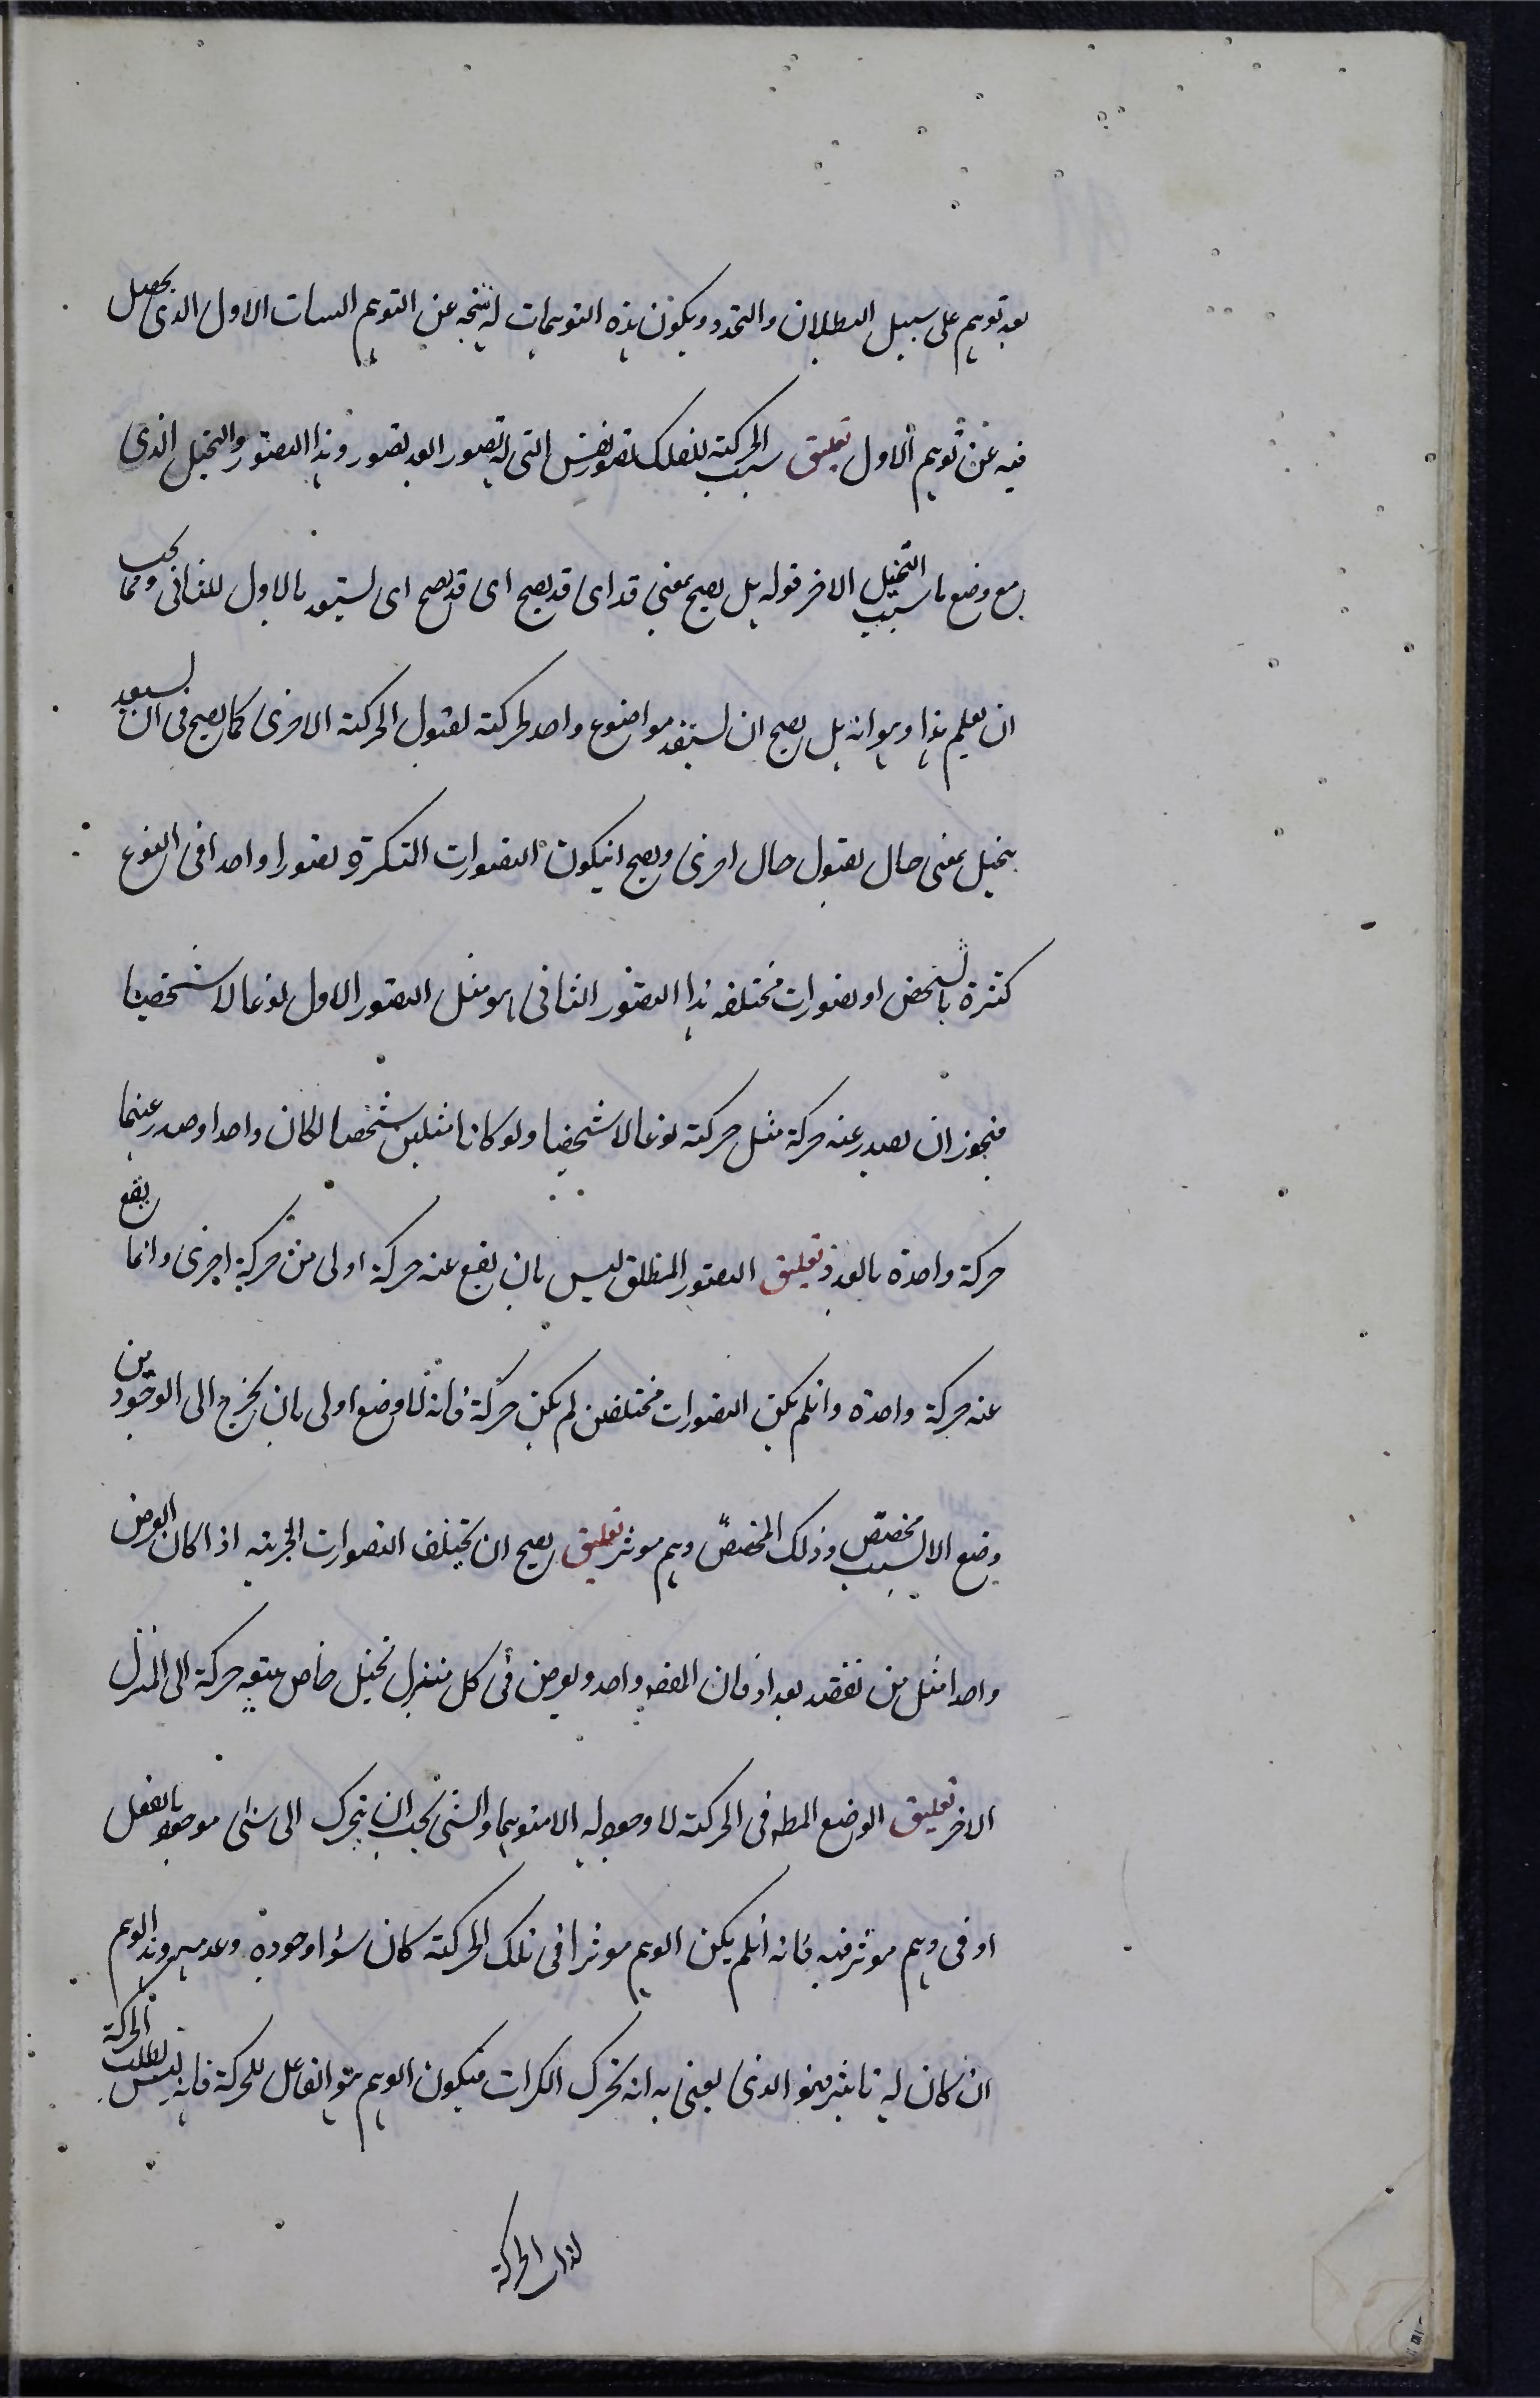 بعد توهم على سبيل البطلان والتجدد ويكون هذه التوهمات له نتيجه عن التوهم السات الاول الذى يحصل
فيه عن توهم الاول تعليق سبب الحركته للفلك تصور النفس التى له تصور ابعد تصور وهذا التصور والتخيل الذى
مع وضع ما سبب التخيل الاخر قوله بل يصح بمعنى قد اى قد يصح اى قد يصح اى ليستعد بالاول للثانى ومما يجب
ان يعلم هذا وهو انه بل يصح ان ليستعد مواضوع واحد لحركته لقبول الحركته الاخرى كما يصح فى ان ليستعد
بتخيل بمعنى حال لقبول حال اخرى ويصح انيكون التصورات المتكررة تصورا واحدا فى النوع
كثرة بالشخص او تصورات مختلفه هذا التصور الثانى هو مثل التصور الاول نوعا لا شخصيا
فيجوز ان يصدر عنه حركة مثل حركته نوعا لا شخصيا ولو كانا مثلين شخصا لكان واحدا وصدر عنهما
حركة واحدة بالعدد تعليق التصور المطلق ليس بان يقع عنه حركة اولى من حركة اخرى وانما يقع
عنه حركة واحدة وانلم يكن التصورات مختلفين لم يكن حركة فانه لا وضع اولى بان يخرج الى الوجود من
وضع الا لسبب مخصص وذلك المخصص وهم موثر تعليق يصح ان يختلف التصورات الجزيه اذا كان الغرض
واحدا مثل من يقصد بغداد فان المقصد واحد ويعرض فى كل منزل تخيل خاص يتبعه حركة الى المنزل
الاخر تعليق الوضع المطه فى الحركته لا وجود له الا متوهما والشى يجب ان يتحرك الى شى موجود بالفعل
او فى وهم موثر فيه فانه انلم يكن الوهم موثرا فى تلك الحركته كان سؤا وجوده وعدمه وهذا الوهم
ان كان له تاثير فهو الذى يعنى به انه تحرك الكرات فيكون الوهم هو الفاعل للحركة فانه ليس لطلب الحركة
لذات الحركة